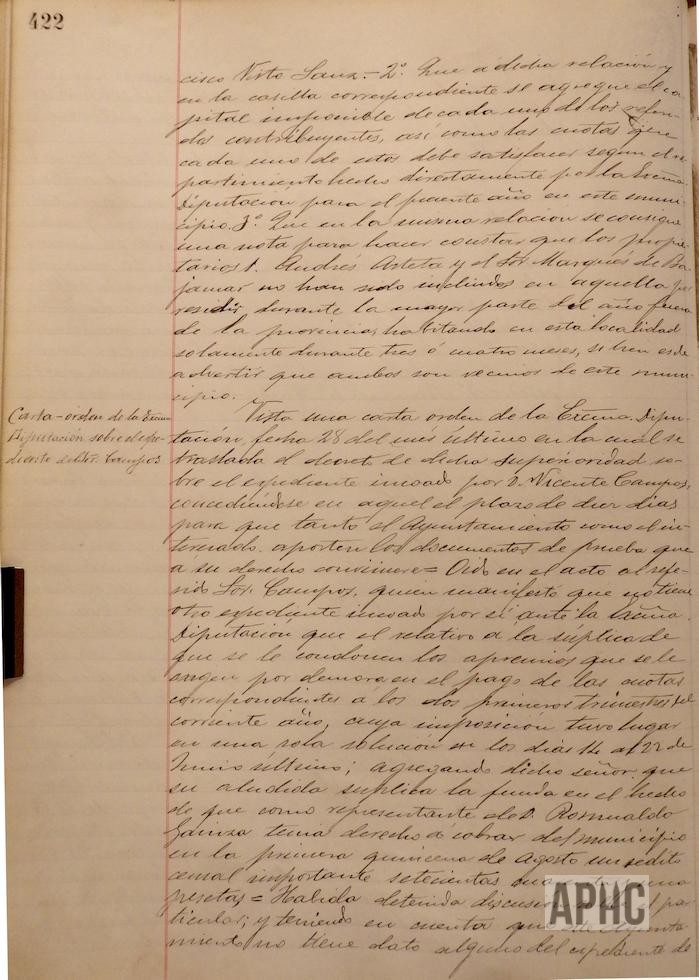 422
cisco Visto Sanz.- 2.º Que a dicha relación y
en la casilla correspondiente se agregue el ca-
pital imponible de cada uno de los referi-
dos contribuyentes, asi como las cuotas que
cada uno de estos debe satisfacer segun el re-
partimiento hecho directamente por la Excma
Diputación para el presente año en este muni-
cipio. 3.º Que en la misma relacion se consigne
una nota para hacer constar que los propie-
tarios D. Andrés Arteta y el Sor. Marqués de Ba-
jamar no han sido incluidos en aquella por
residir durante la mayor parte del año fuera
de la provincia, habitando en esta localidad
solamente durante tres ó cuatro meses, si bien es de
advertir que ambos son vecinos de este muni-
cipio.
Carta-orden de la Excma
Diputación sobre el espe-
diente del Sr. Campos
Vista una carta orden de la Excma. Dipu-
tación, fecha 28 del mes último en la cual se
traslada el decreto de dicha superioridad so-
bre el expediente incoado por D. Vicente Campos,
concediendose en aquel el plazo de diez dias
para que tanto el Ayuntamiento como el in-
teresado aporten los documentos de prueba que
a su derecho conviniere = Oido en el acto al refe-
rido Sor. Campos, quien manifestó que no tiene
otro expediente incoado por sí ante la Excma.
Diputacion que el relativo a la súplica de
que se le condonen los apremios que se le
exigen por demora en el pago de las cuotas
correspondientes á los dos primeros trimestres del
corriente año, cuya imposición tuvo lugar
en una sola solución en los dias 14 al 22 de
Junio último; agregando dicho señor que
su aludida suplica la funda en el hecho
de que como representante de D. Romualdo
Gainza tenia derecho a cobrar del municipio
en la primera quincena de Agosto un rédito
censal importante setecientas
pesetas = Habida detenida discusion par-
ticular; y teniendo en cuenta que
miento no tiene dato alguno del expediente de
APHC